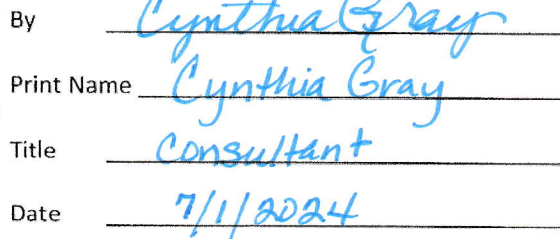 By Cynthia Gray
Print Name Cynthia Gray
Title Consultant
Date 7/1/2024